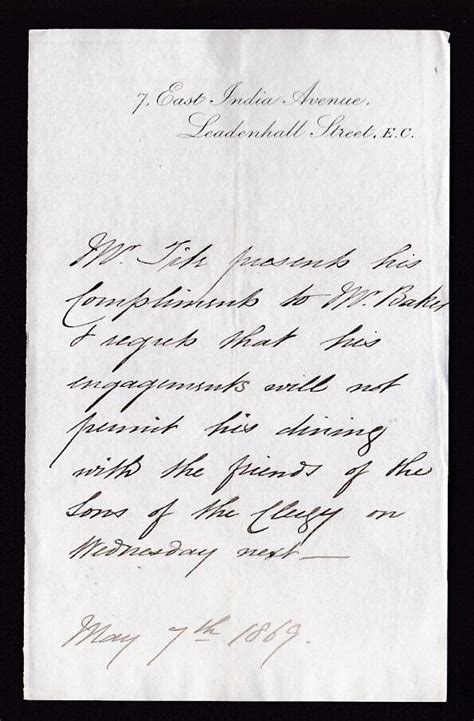 7, East India Avenue,
Leadenhall Street, E.C.
Mr. Tite presents his
Compliments to Mr. Baker
& regrets that his
engagements will not
permit his dining
with the friends of the
Sons of the Clergy on
Wednesday next —
May 7th 1869.